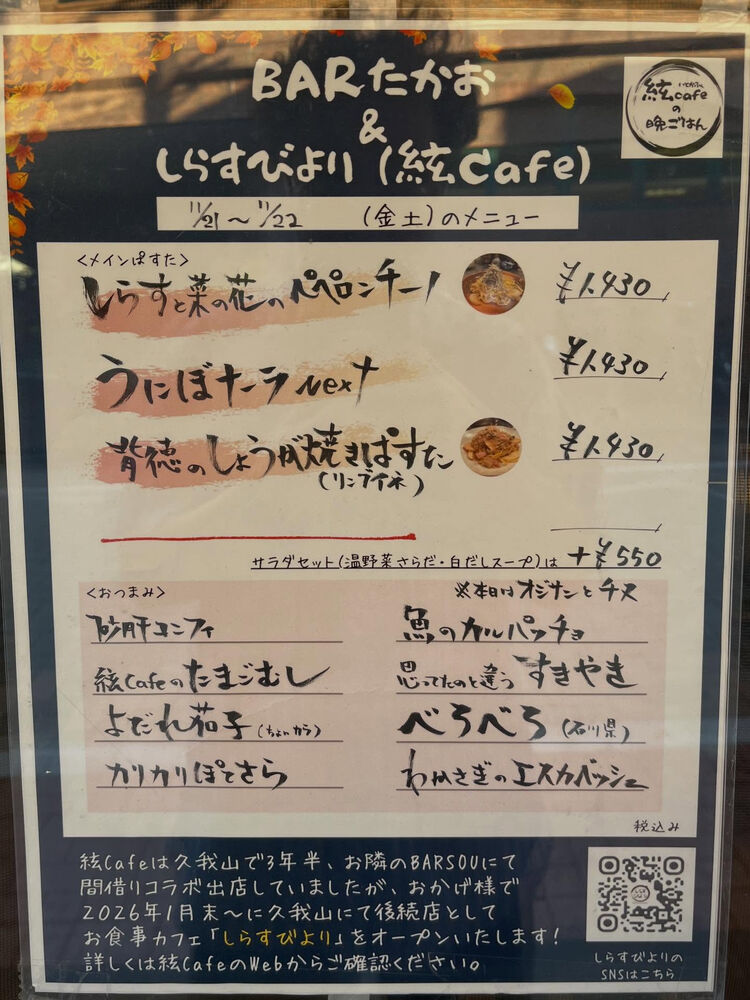 BARたかお
&
しらすびより(絃Cafe)
絃cafe
の
晩ごはん
11/21〜11/22 (金土)のメニュー
<メインぱすた>
しらすと菜の花のペペロンチーノ ¥1.430
うにぼナーラNext ¥1.430
背徳のしょうが焼きぱすた ¥1.430
(リングイネ)
サラダセット(温野菜さらだ・白だしスープ)は +¥550
<おつまみ>
※本日はオジサンとチヌ
砂肝コンフィ
魚のカルパッチョ
絃Cafeのたまごむし
思ってたのと違うすきやき
よだれ茄子(ちょいカラ)
べろべろ(石川県)
カリカリぽてさら
わかさぎのエスカベッシュ
税込み
絃Cafeは久我山で3年半、お隣のBARSOUにて
間借りコラボ出店していましたが、おかげ様で
2026年1月末〜に久我山にて後続店として
お食事カフェ「しらすびより」をオープンいたします!
詳しくは絃CafeのWebからご確認ください。
しらすびよりの
SNSはこちら